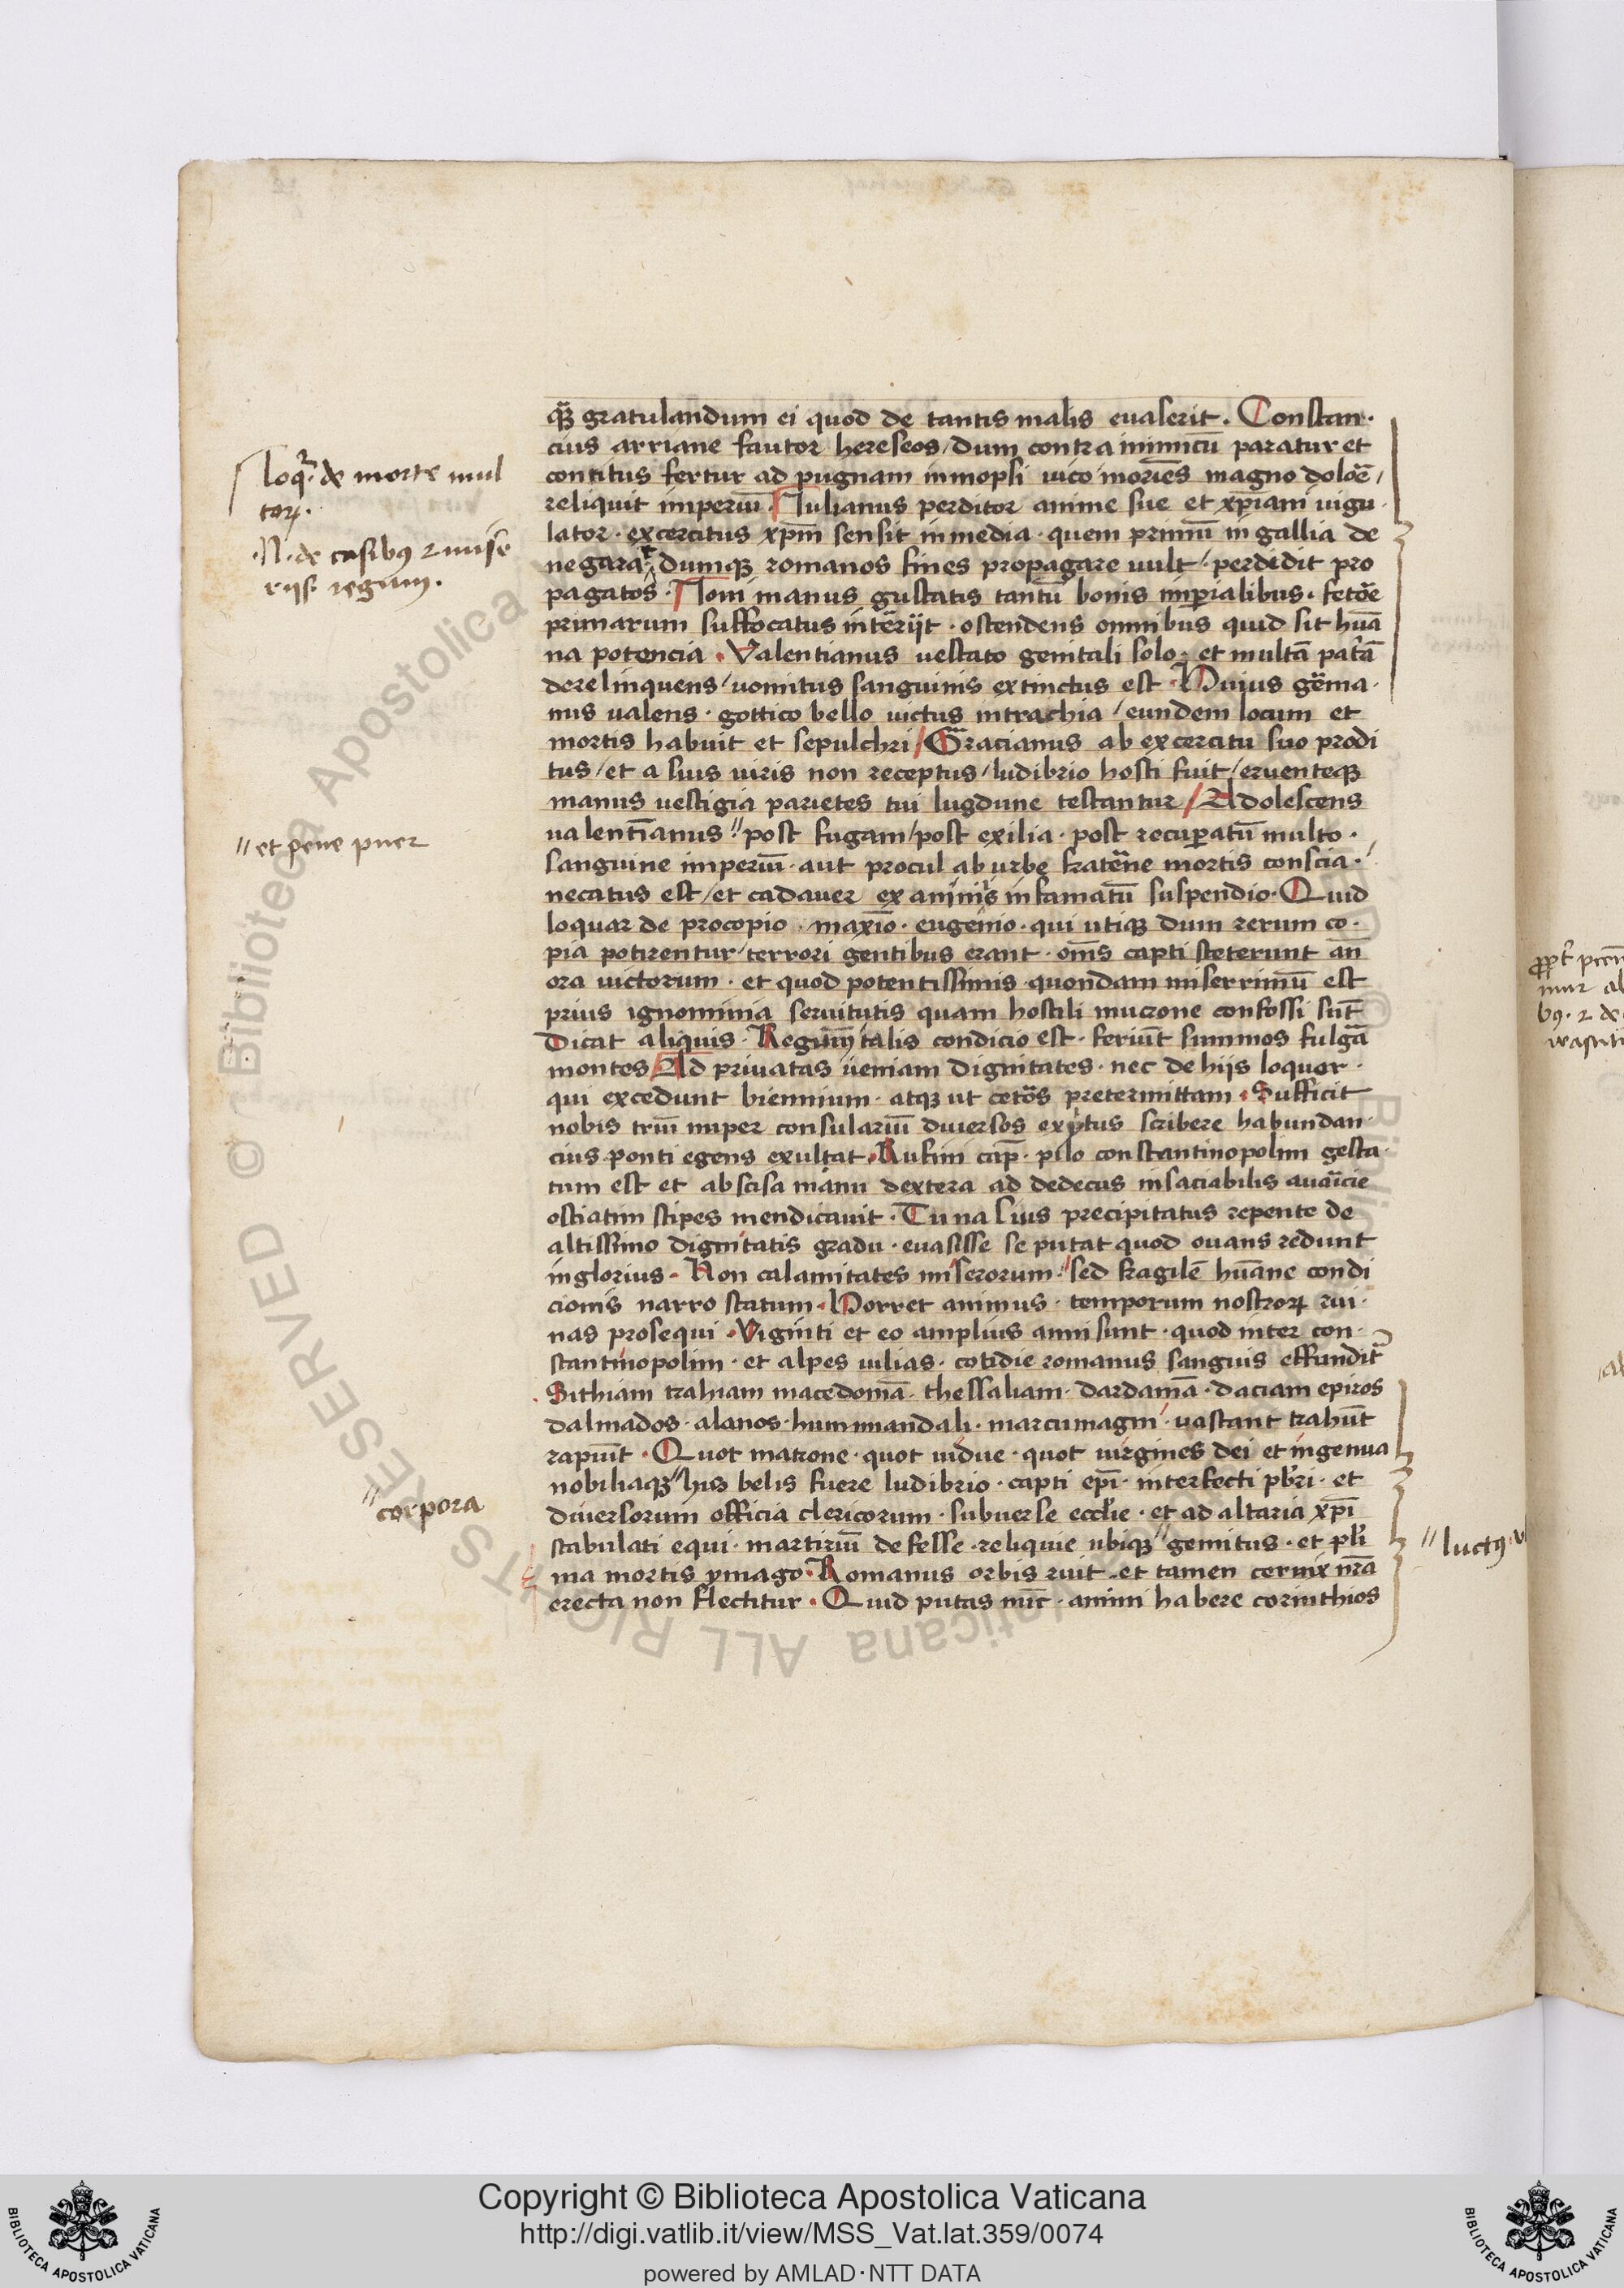 qȝ gratulandum ei quod de tantis malis euaserit. Constan·
cius arriane fautor hereseos/dum contra inimicū paratur et
concitus fertur ad pugnam inmopsi uico moriēs magno dolōe/
reliquit imperiū. Iulianus perditor anime sue et xp̄iani uigu·
lator·excercitus xp̄m sensit inmedia·quem primū in gallia de
negarat dumqȝ romanos fines propagare uult/perdidit pro
pagatos·Ioui manus gustatis tantū bonis imperialibus·fetōe
primarum suffocatus interijt·ostendens omnibus quid sit hūa
na potencia·Valentianus uestato genitali solo·et multā pat̄ā
derelinquens/uomitus sanguinis extinctus est·Huius germa·
nus ualens·gottico bello uictus intrachia/eundem locum et
mortis habuit et sepulchri/Gracianus ab excercitu suo prodi
tus/et a suis uiris non receptus/ludibrio hosti fuit/eruenteqȝ
manus uestigia parietes tui lugdune testantur/Adolescens
ualentīanus //post fugam/post exilia·post recuperatū multo·
sanguine imperiū·aut procul ab urbe fraterne mortis conscia·
necatus est/et cadauer exanimis infamatū suspendio·Quid
loquar de procopio·maxīo·eugenio·qui utiqȝ dum rerum co·
pia potirentur/terrori gentibus erant·om̄s capti steterunt an̄
ora uictorum·et quod potentissimis·quondam miserrimū est
prius ignominia seruitutis quam hostili mucrone confossi sūt
Dicat aliquis·Regum talis condicio est·feriūt summos fulgā
montes/Ad priuatas ueniam dignitates·nec de hijs loquor·
qui excedunt biennium·atqȝ ut cetōs pretermittam·Sufficit
nobis triū nuper consulariū diuersos exitus scribere habundan·
cius ponti egens exultat·Rufini cap̄·pilo constantinopolim gesta·
tum est et abscisa manu dextera ad dedecus insaciabilis auaricie
ostiatim stipes mendicauit·Tunasius precipitatus repente de
altissimo dignitatis gradu·euasisse se putat quod ouans redunt
inglorius·Non calamitates miserorum·sed fragilē hūane condi
cionis narro statum·Horret animus·temporum nostroꝝ rui·
nas prosequi·Viginti et eo amplius anni sunt·quod inter con·
stantinopolim·et alpes iulias·cotidie romanus sanguis effundit̄
Sithiam trahiam macedoniā·thessaliam·dardaniā·daciam epiros
dalmados·alanos·hunnuandali·marcumagni·uastant trahūt
rapiūt·Quot matrone·quot uidue·quot uirgines dei et ingenua
nobiliaqȝ //hijs belis fuere ludibrio·capti ep̄i·interfecti pb̄ri·et
diuersorum officia clericorum·subuerse eccl̄ie·et ad altaria xp̄i
stabulati equi·martiriū defesse·reliquie ubiqȝ //gemitus·et pl̄i
ma mortis ymago·Romanus orbis ruit·et tamen ceruix nr̄a
erecta non flectitur·Quid putas nūc·animi habere corinthios
loqr̄ de morte mul
toꝝ.
·N·de casibꝫ 2 mise
rijs regum.
// et pene puer
// corpora
// luctꝫ
Copyright © Biblioteca Apostolica Vaticana
http://digi.vatlib.it/view/MSS_Vat.lat.359/0074
powered by AMLAD·NTT DATA
BIBLIOTECA APOSTOLICA VATICANA
BIBLIOTECA APOSTOLICA VATICANA